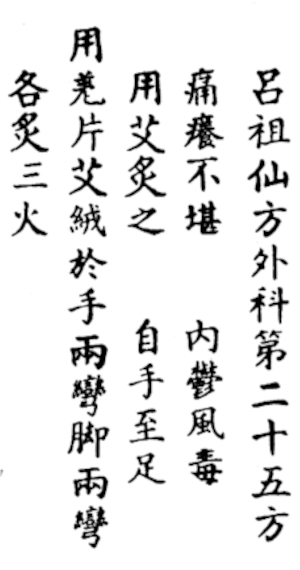 呂祖仙方外科第二十五方
痛癢不堪　內鬱風毒
用艾炙之　自手至足
用羗片艾絨於手兩彎脚兩彎
各炙三火